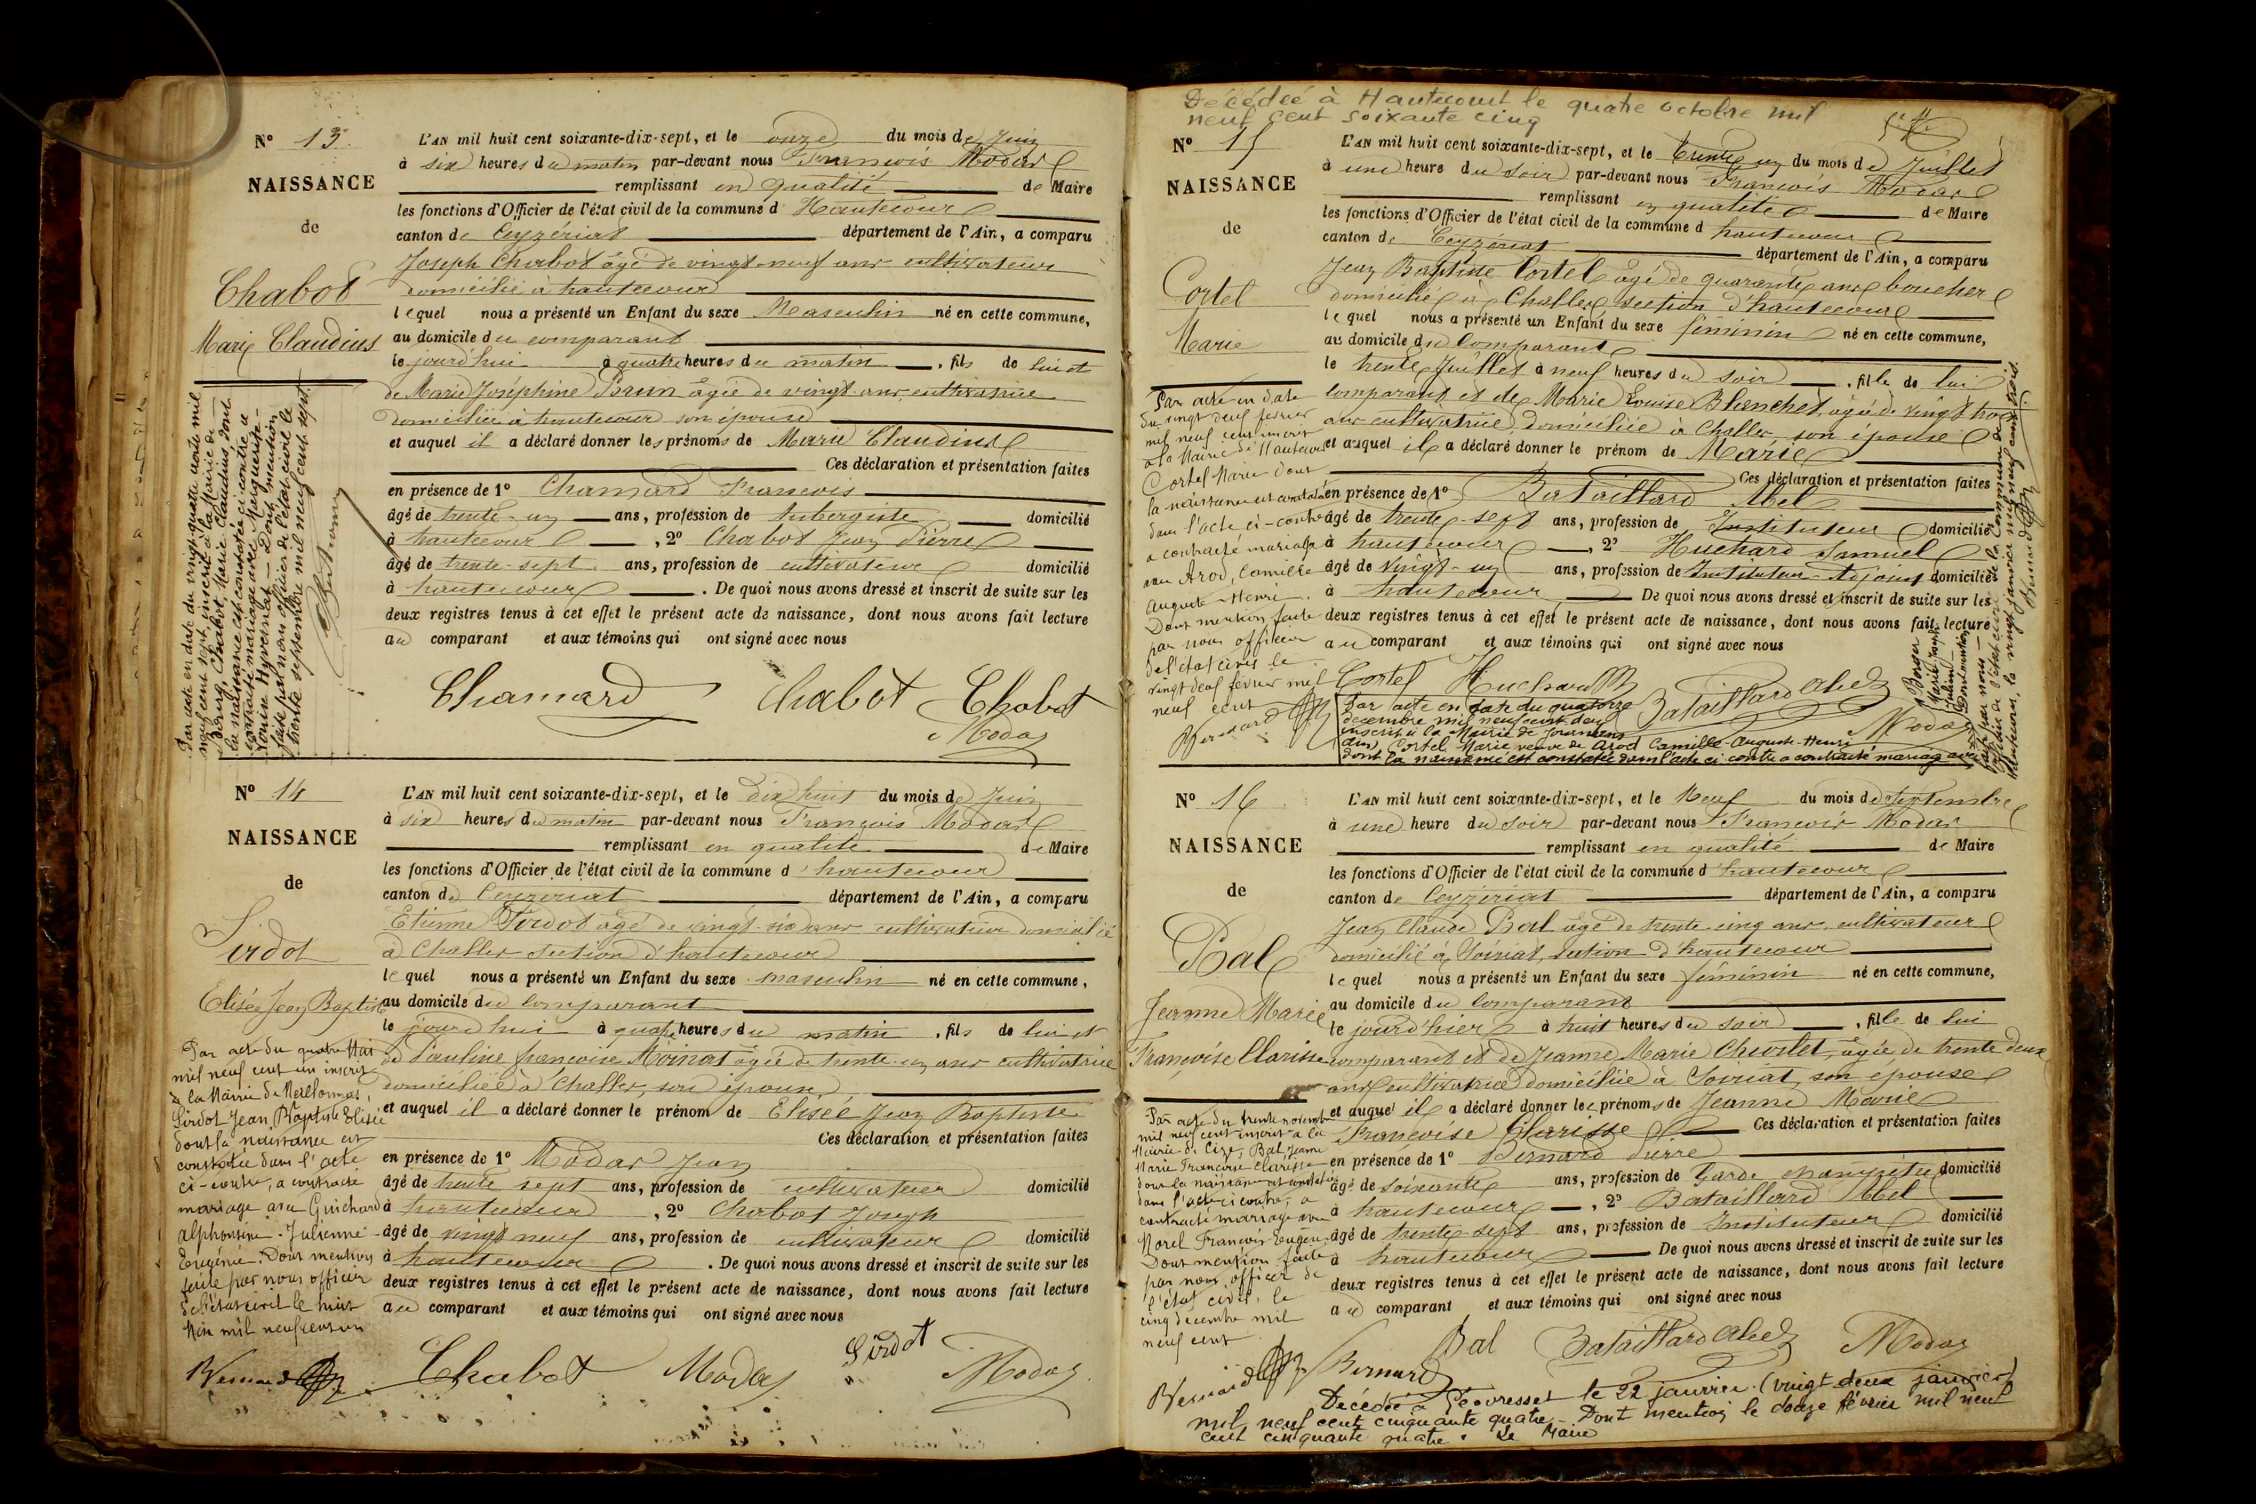 N° 13
NAISSANCE
de
Chabot
Marie Claudius
L'AN mil huit cent soixante-dix-sept, et le onze du mois de Juin
à six heures du matin par-devant nous François Modas
remplissant en qualité de Maire
les fonctions d'Officier de l'état civil de la commune d Hautecour
canton de Ceyzériat département de l'Ain, a comparu
Joseph Chabot âgé de vingt-neuf ans cultivateur
domicilié à hautecour
lequel nous a présenté un Enfant du sexe Masculin né en cette commune,
au domicile du comparant
le jourd'hui à quatre heures du matin, fils de lui et
de Marie Joséphine Brun âgée de vingt ans, cultivatrice
domiciliée à hautecour son épouse
et auquel il a déclaré donner les prénoms de Marie Claudius
Ces déclaration et présentation faites
en présence de 1° Chamard François
âgé de trente-un ans, profession de Aubergiste domicilié
à hautecour, 2° Chabot Jean Pierre
âgé de trente-sept ans, profession de cultivateur domicilié
à hautecour. De quoi nous avons dressé et inscrit de suite sur les
deux registres tenus à cet effet le présent acte de naissance, dont nous avons fait lecture
au comparant et aux témoins qui ont signé avec nous
Chamard Chabot Chabot
Modas
Par acte en date du vingt quatre août mil
neuf cent sept, inscrit à la Mairie de
Bourg, Chabot, Marie Claudius, dont
la naissance est constatée ci-contre a
contracté mariage avec Marguerite-
Louise Hyvernat. Dont mention
faite par nous officier de l'état civil le
trente septembre mil neuf cent sept.
N° 14
NAISSANCE
de
Sirdot
Elisée Jean Baptiste
L'AN mil huit cent soixante-dix-sept, et le dix huit du mois de Juin
à six heures du matin par-devant nous François Modas
remplissant en qualité de Maire
les fonctions d'Officier de l'état civil de la commune d hautecour
canton de Ceyzériat département de l'Ain, a comparu
Etienne Sirdot âgé de vingt-six ans cultivateur domicilié
à Challes section d'hautecour
lequel nous a présenté un Enfant du sexe masculin né en cette commune,
au domicile du comparant
le jourd'hui à quatre heures du matin, fils de lui et
de Pauline françoise Moinat âgée de trente-un ans cultivatrice
domiciliée à Challes, son épouse
et auquel il a déclaré donner le prénom de Elisée Jean Baptiste
Ces déclaration et présentation faites
en présence de 1° Modas Jean
âgé de trente sept ans, profession de cultivateur domicilié
à hautecour, 2° Chabot Joseph
âgé de vingt neuf ans, profession de cultivateur domicilié
à hautecour. De quoi nous avons dressé et inscrit de suite sur les
deux registres tenus à cet effet le présent acte de naissance, dont nous avons fait lecture
au comparant et aux témoins qui ont signé avec nous
Chabot Modas Sirdot Modas
Par acte du quatre Mai
mil neuf cent un inscrit
à la Mairie de
Sirdot Jean Baptiste Elisée
dont la naissance est
constatée dans l'acte
ci-contre, a contracté
mariage avec Guichard
Alphonsine-Julienne-
Eugénie. Dont mention
faite par nous officier
de l'état civil le huit
Mai mil neuf cent un
Bernard
Décédée à Hautecourt le quatre octobre mil
neuf cent soixante cinq
N° 15
NAISSANCE
de
Cortel
Marie
L'AN mil huit cent soixante-dix-sept, et le trente un du mois de Juillet
à une heure du soir par-devant nous François Modas
remplissant en qualité de Maire
les fonctions d'Officier de l'état civil de la commune d hautecour
canton de Ceyzériat département de l'Ain, a comparu
Jean Baptiste Cortel âgé de quarante ans boucher
domicilié à Challes section d'hautecour
lequel nous a présenté un Enfant du sexe féminin né en cette commune,
au domicile du comparant
le trente Juillet à neuf heures du soir, fille de lui
comparant et de Marie Louise Blanchet, âgée de vingt trois
ans cultivatrice domiciliée à Challes, son épouse
et auquel il a déclaré donner le prénom de Marie
Ces déclaration et présentation faites
en présence de 1° Bataillard Abel
âgé de trente-sept ans, profession de Instituteur domicilié
à hautecour, 2° Huchard Samuel
âgé de vingt-un ans, profession de Instituteur-Adjoint domicilié
à hautecour De quoi nous avons dressé et inscrit de suite sur les
deux registres tenus à cet effet le présent acte de naissance, dont nous avons fait lecture
au comparant et aux témoins qui ont signé avec nous
Cortel Huchard Bataillard Abel
Modas
Par acte en date
du vingt deux février
mil neuf cent inscrit
à la Mairie d'Hautecour
Cortel Marie dont
la naissance est constatée
dans l'acte ci-contre
a contracté mariage
avec Arod, Camille
Auguste-Henri.
Dont mention faite
par nous officier
de l'état civil le
vingt deux février mil
neuf cent
Bernard
Par acte en date du quatorze
décembre mil neuf cent deux
inscrit à la Mairie de
(Ain) Cortel Marie veuve de Arod Camille-Auguste-Henri
dont la naissance est constatée dans l'acte ci contre a contracté mariage avec
Marie Joseph
Dont mention
faite par nous
officier de l'état civil de la Commune de
Hautecour, le vingt janvier mil neuf cent trois
Bernard
N° 16
NAISSANCE
de
Bal
Jeanne Marie
Françoise Clarisse
L'AN mil huit cent soixante-dix-sept, et le Neuf du mois de Septembre
à une heure du soir par-devant nous François Modas
remplissant en qualité de Maire
les fonctions d'Officier de l'état civil de la commune d hautecour
canton de Ceyzériat département de l'Ain, a comparu
Jean Claude Bal âgé de trente-cinq ans, cultivateur
domicilié à Soiriat, section d'hautecour
lequel nous a présenté un Enfant du sexe féminin né en cette commune,
au domicile du comparant
le jourd'hier à huit heures du soir, fille de lui
comparant et de Jeanne Marie Chevrelet, âgée de trente deux
ans cultivatrice domiciliée à Soiriat, son épouse
et auquel il a déclaré donner les prénoms de Jeanne Marie
Françoise Clarisse Ces déclaration et présentation faites
en présence de 1° Bernard Pierre
âgé de soixante ans, profession de Garde champêtre domicilié
à hautecour, 2° Bataillard Abel
âgé de trente-sept ans, profession de Instituteur domicilié
à hautecour De quoi nous avons dressé et inscrit de suite sur les
deux registres tenus à cet effet le présent acte de naissance, dont nous avons fait lecture
au comparant et aux témoins qui ont signé avec nous
Bernard Bal Bataillard Abel Modas
Par acte du trente novembre
mil neuf cent inscrit à la
Mairie de Cize, Bal Jeanne
Marie Françoise Clarisse
dont la naissance est constatée
dans l'acte ci contre, a
contracté mariage avec
Morel François-Eugène.
Dont mention faite
par nous officier de
l'état civil, le
cinq décembre mil
neuf cent
Bernard
Décédée à Péovresset le 22 janvier (vingt deux janvier)
mil neuf cent cinquante quatre - Dont mention le douze février mil neuf
cent cinquante quatre. Le Maire